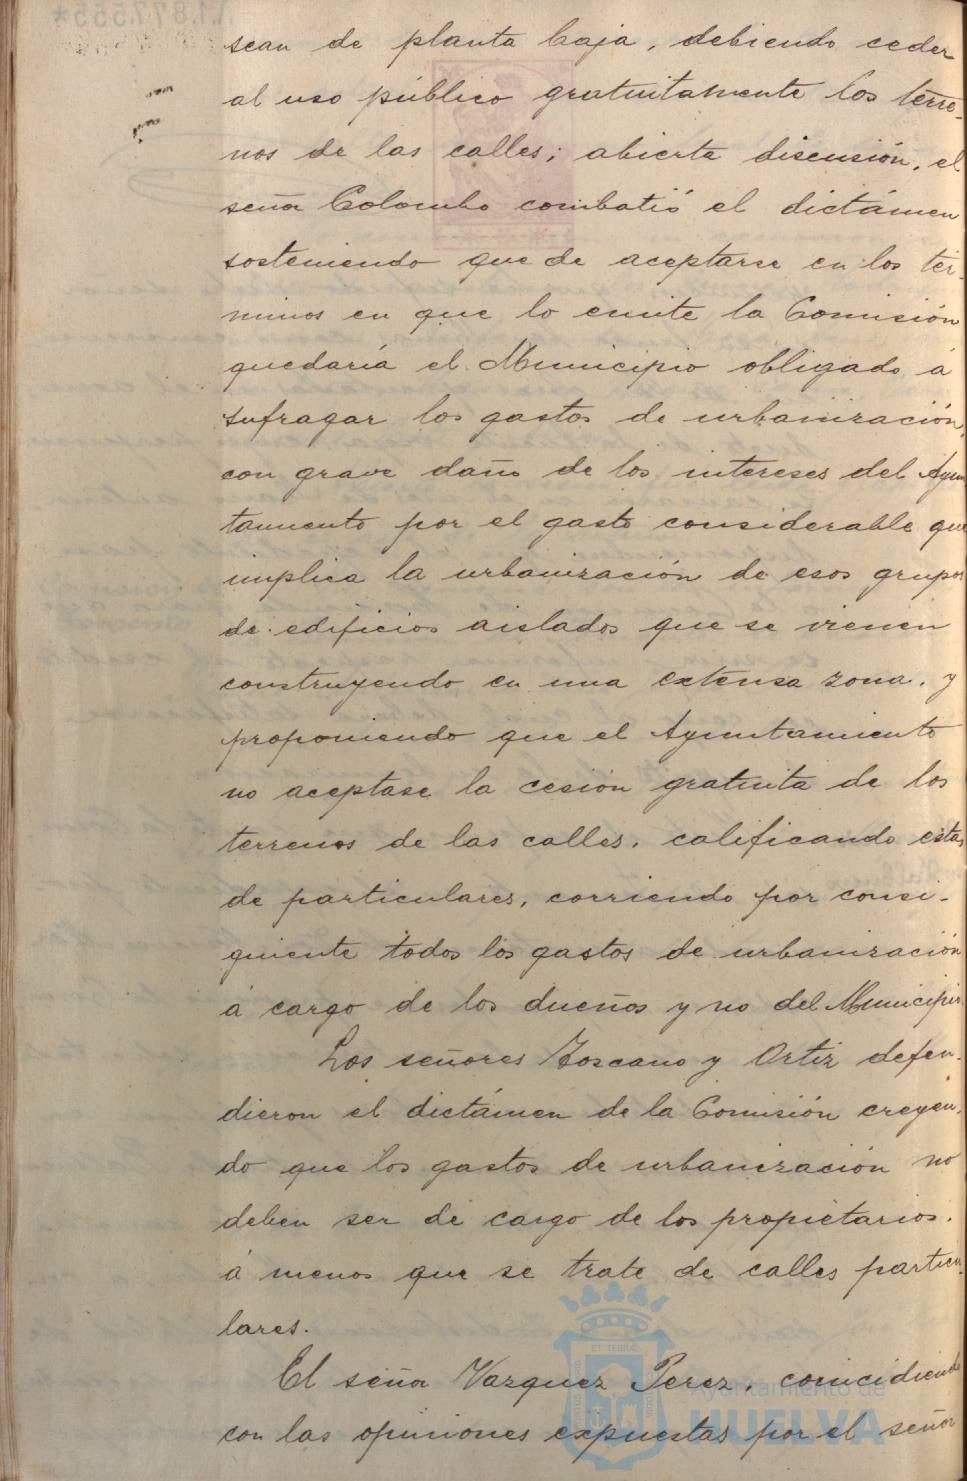 sean de planta baja, debiendo ceder
al uso público gratuitamente los terre-
nos de las calles; abierta discusión, el
señor Colombo combatió el dictámen
sosteniendo que de aceptarse en los tér-
minos en que lo emite la Comisión
quedaría el Municipio obligado á
sufragar los gastos de urbanización,
con grave daño de los intereses del Ayun
tamiento por el gasto considerable que
implica la urbanización de esos grupos
de edificios aislados que se vienen
construyendo en una extensa zona, y
proponiendo que el Ayuntamiento
no aceptase la cesión gratuita de los
terrenos de las calles, calificando estas
de particulares, corriendo por consi-
guiente todos los gastos de urbanización
á cargo de los dueños y no del Municipio.
Los señores Toscano y Ortiz defen-
dieron el dictámen de la Comisión creyen-
do que los gastos de urbanización no
deben ser de cargo de los propietarios,
á menos que se trate de calles particu-
lares.
El señor Vazquez Perez, coincidiendo
con las opiniones expuestas por el señor
Ayuntamiento de
HUELVA